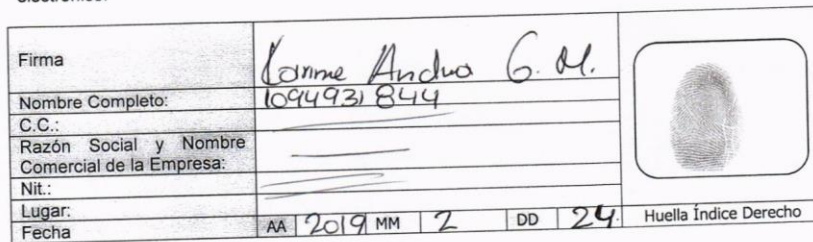 Firma
Andrea G. M.
Nombre Completo: 1094931844
C.C.:
Razón Social y Nombre
Comercial de la Empresa:
Nit.:
Lugar:
Fecha AA 2019 MM 2 DD 24
Huella Índice Derecho